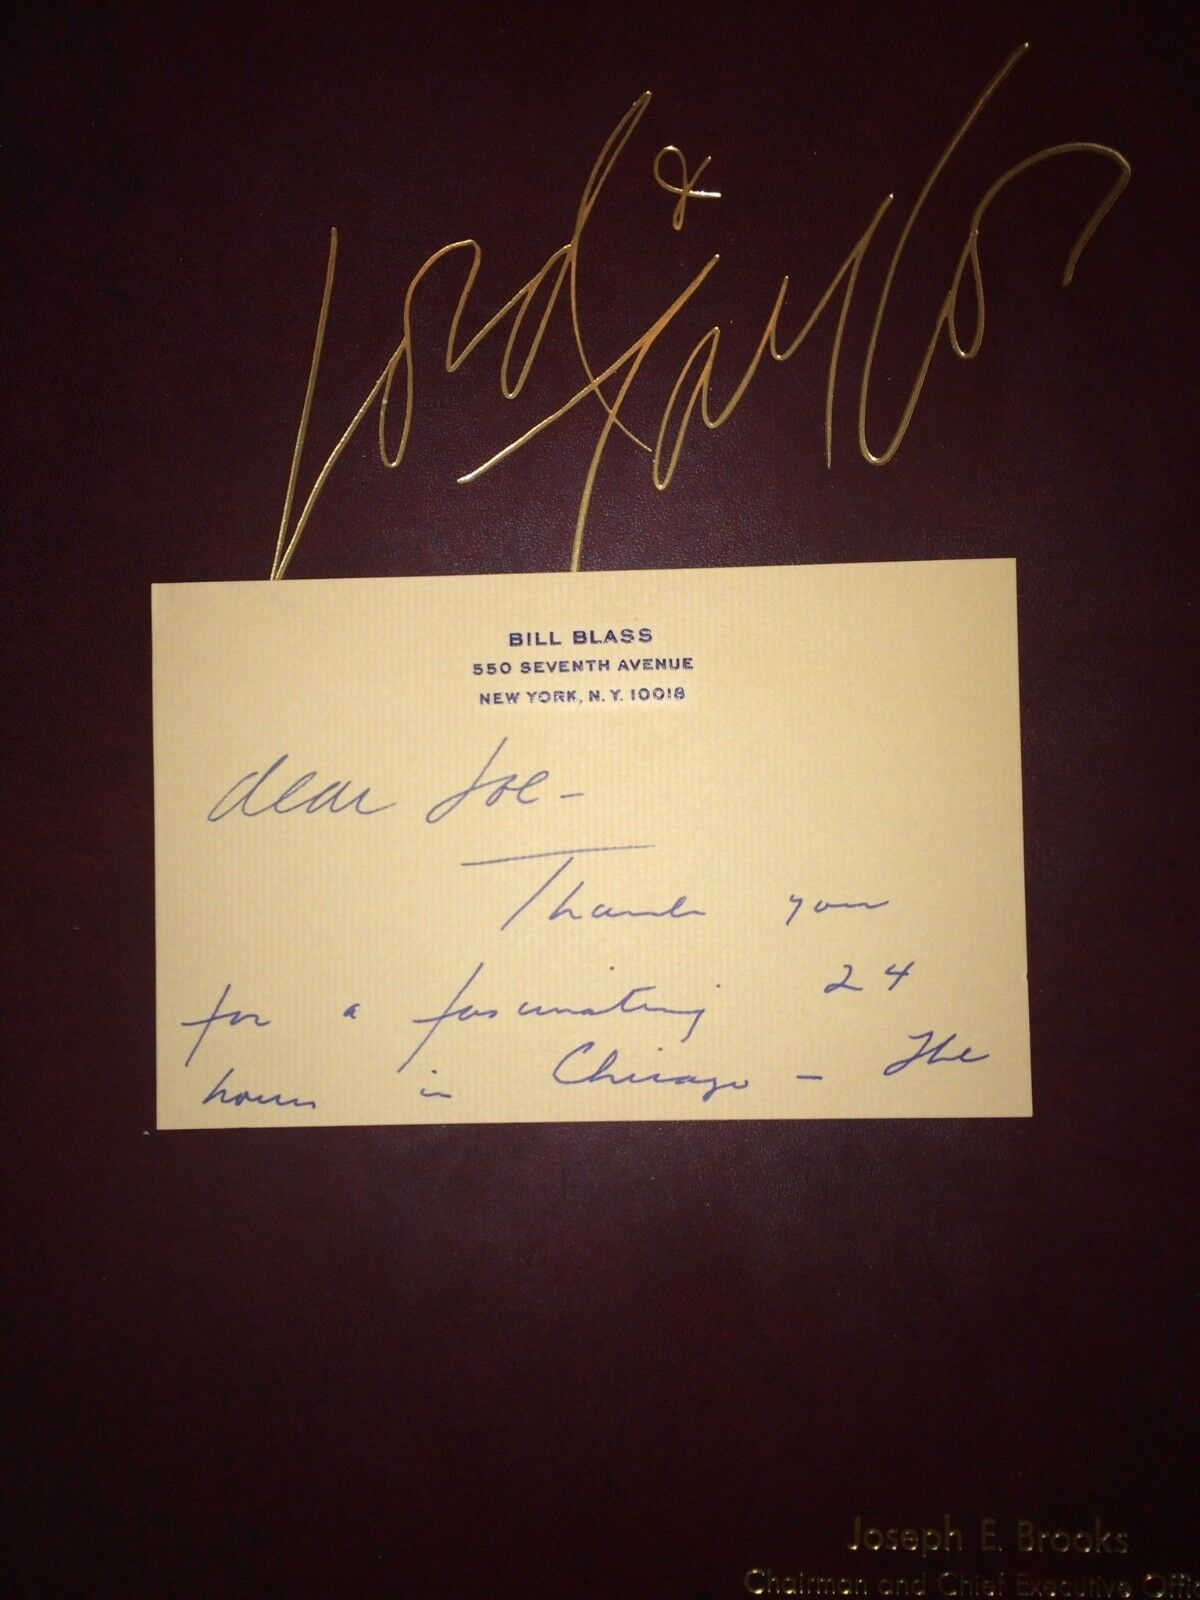 Lord & Taylor
BILL BLASS
550 SEVENTH AVENUE
NEW YORK, N.Y. 10018
dear Joe –
Thank you
for a fascinating 24
hours in Chicago – The
Joseph E. Brooks
Chairman and Chief Executive Offic